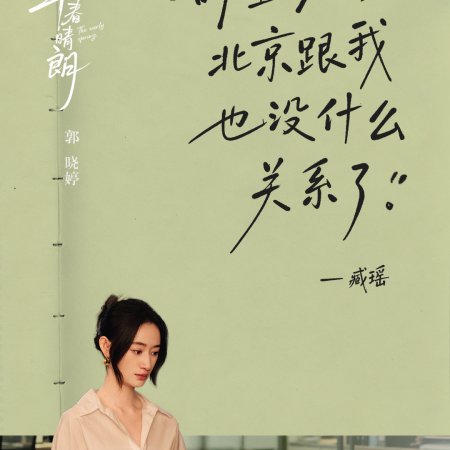 早春晴朗
The early spring
郭晓婷
北京跟我
也没什么
关系了。”
—臧瑶